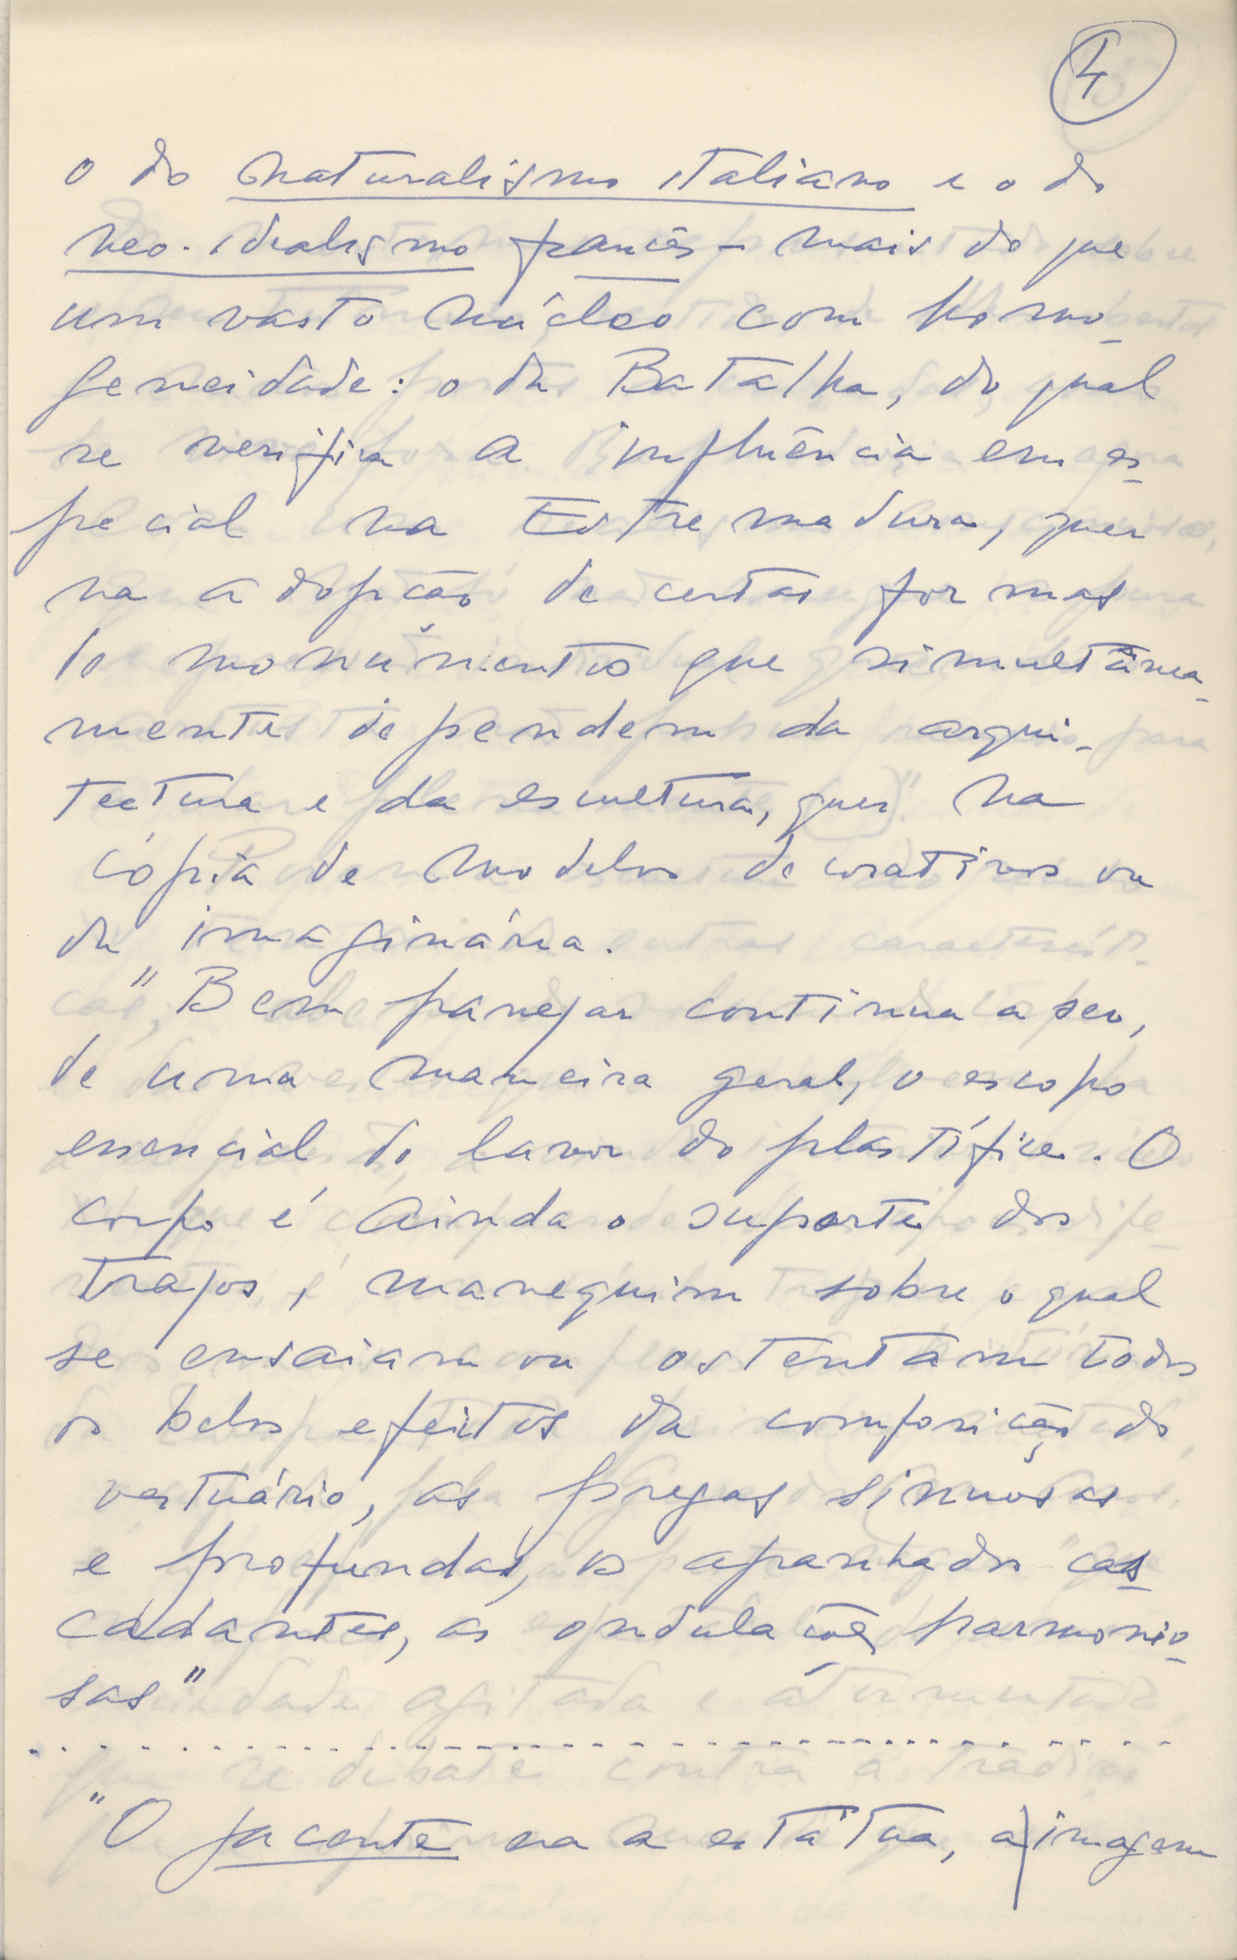 4
o do naturalismo italiano e o do
neo-idealismo francês - mais do que
um vasto núcleo com homo-
geneidade: o da Batalha, do qual
se verifica a influência em es-
pecial na Estremadura, quer
na adopção de certas formas
do monumento que simultânea-
mente dependem da arqui-
tectura e da escultura, quer na
cópia de modelos decorativos ou
da imaginária.
"Bem panejar continua a ser,
de uma maneira geral, o escopo
essencial do lavor do plastífice. O
corpo é ainda o suporte dos
trajos, manequim sobre o qual
se ensaiam ou ostentam todos
os belos efeitos da composição do
vestuário, as pregas sinuosas
e profundas, os apanhados cas-
cadantes, as ondulações harmonio-
sas"
"O jacente era a estátua, a imagem